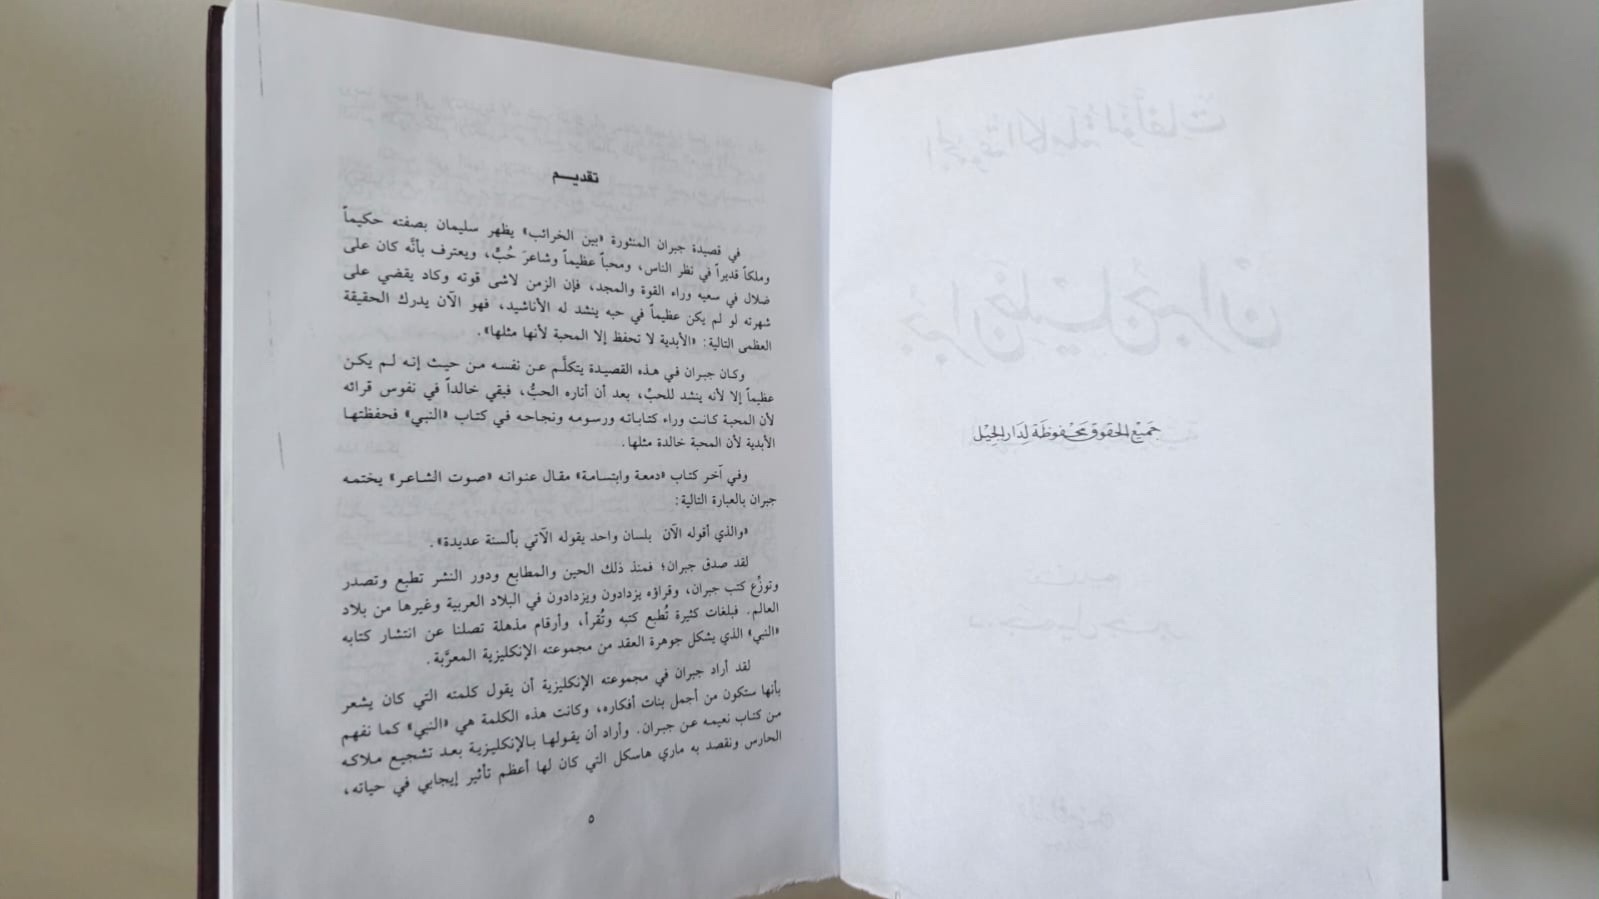 جميع الحقوق محفوظة لدار الجيل
تقديم
في قصيدة جبران المنثورة «بين الخرائب» يظهر سليمان بصفته حكيماً
وملكاً قديراً في نظر الناس، ومحباً عظيماً وشاعرَ حُبٍّ، ويعترف بأنَّه كان على
ضلال في سعيه وراء القوة والمجد، فإن الزمن لاشى قوته وكاد يقضي على
شهرته لو لم يكن عظيماً في حبه ينشد له الأناشيد، فهو الآن يدرك الحقيقة
العظمى التالية: «الأبدية لا تحفظ إلا المحبة لأنها مثلها».
وكان جبران في هذه القصيدة يتكلَّم عن نفسه من حيث إنه لم يكن
عظيماً إلا لأنه ينشد للحبِّ، بعد أن أناره الحبُّ، فبقي خالداً في نفوس قرائه
لأن المحبة كانت وراء كتاباته ورسومه ونجاحه في كتاب «النبي» فحفظتها
الأبدية لأن المحبة خالدة مثلها.
وفي آخر كتاب «دمعة وابتسامة» مقال عنوانه «صوت الشاعر» يختمه
جبران بالعبارة التالية:
«والذي أقوله الآن بلسان واحد يقوله الآتي بألسنة عديدة».
لقد صدق جبران؛ فمنذ ذلك الحين والمطابع ودور النشر تطبع وتصدر
وتوزِّع كتب جبران، وقراؤه يزدادون ويزدادون في البلاد العربية وغيرها من بلاد
العالم. فبلغات كثيرة تُطبع كتبه وتُقرأ، وأرقام مذهلة تصلنا عن انتشار كتابه
«النبي» الذي يشكل جوهرة العقد من مجموعته الإنكليزية المعرَّبة.
لقد أراد جبران في مجموعته الإنكليزية أن يقول كلمته التي كان يشعر
بأنها ستكون من أجمل بنات أفكاره، وكانت هذه الكلمة هي «النبي» كما نفهم
من كتاب نعيمه عن جبران. وأراد أن يقولها بالإنكليزية بعد تشجيع ملاكه
الحارس ونقصد به ماري هاسكل التي كان لها أعظم تأثير إيجابي في حياته،
٥